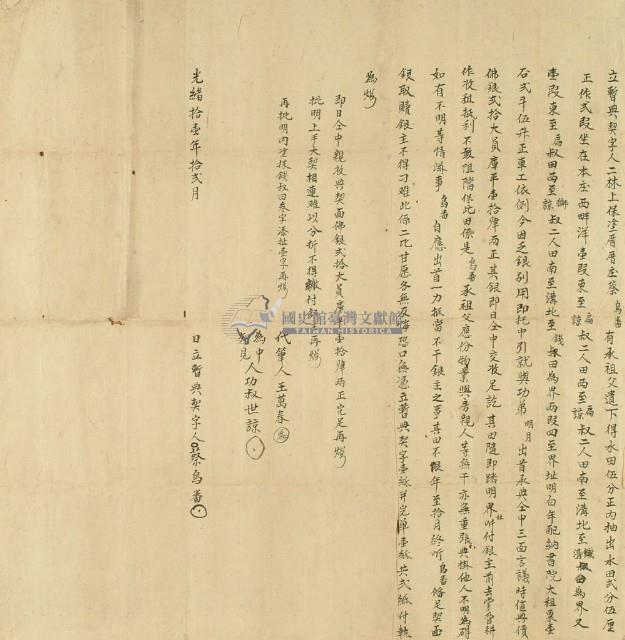 立暫典契字人二林上保塗厝厝庄蔡烏番有承祖父遺下得水田伍分正內抽出水田弍分伍厘
正作弍段坐在本庄西畔洋壹段東至扁叔田西至諒叔二人田南至溝北至錢叔田為界又
壹段東至扁叔田西至諒叔二人田南至溝北至錢叔田為界兩段四至界址明白年配納書院大租粟壹
石弍斗伍升正東工依例今因乏銀別用即托中引就與功弟明月出首承典仝中三面言議時值典價
佛銀弍拾大員庫平壹拾肆兩正其銀即日仝中交收足訖其田隨即踏明界址付銀主前去掌管耕
作收租抵利不敢阻擋保此田係是烏番承祖父應份物業與房親人等無干亦無重張典掛他人不明為碍
如有不明等情滋事烏番自應出首一力抵當不干銀主之事其田不限年至拾月終听烏番俻足契面
銀取贖銀主不得刁难此係二比甘愿各無反悔恐口無憑立暫典契字壹紙并完單壹紙共弍紙付執
為炤
即日仝中親收典契面佛銀弍拾大員庫平壹拾肆兩正完足再炤
批明上手大契相連难以分折不得繳付銀主再炤
再批明內塗抹錢叔田叁字添址壹字再炤
代筆人王萬春
為中人功叔世諒
知見
光緒拾壹年拾弍月 日立暫典契字人蔡烏番
國史館臺灣文獻館
TAIWAN HISTORICA